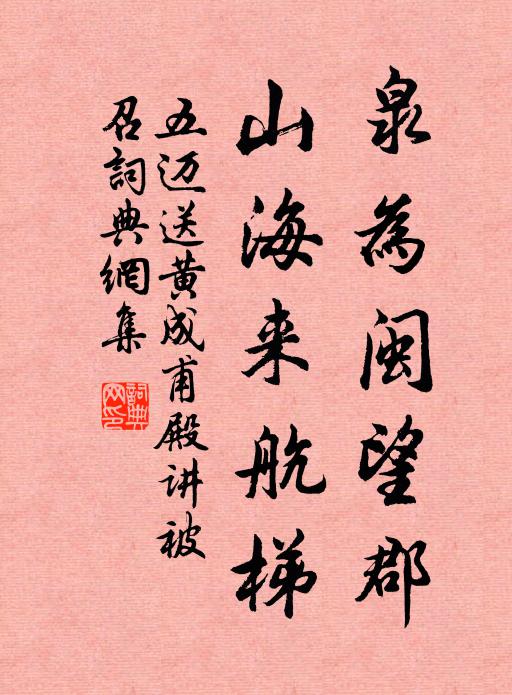 泉為閩望郡
山海来航梯
五迈送黄成甫殿讲被
召詞典網集
詞典
网印